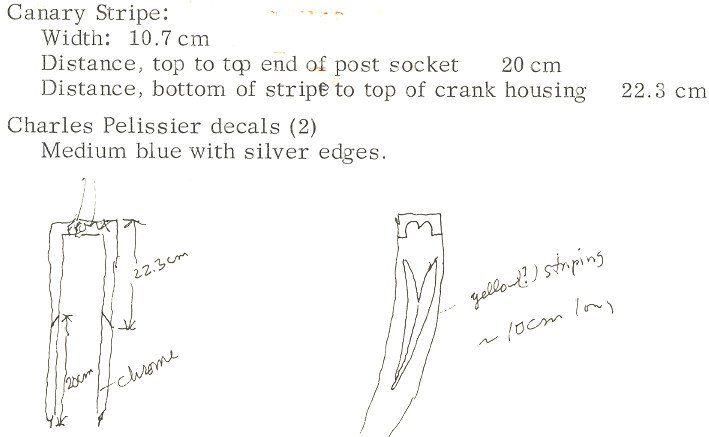 Canary Stripe:
Width: 10.7 cm
Distance, top to top end of post socket 20 cm
Distance, bottom of stripe to top of crank housing 22.3 cm
Charles Pelissier decals (2)
Medium blue with silver edges.
22.3cm
20cm
chrome
yellow(?) striping
~ 10cm long